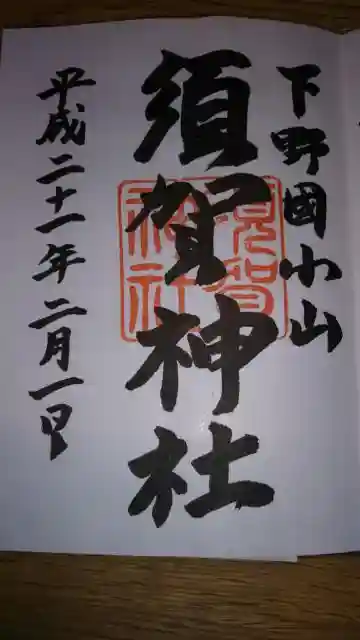 下野國小山
須賀神社
平成二十一年二月一日
須賀
神社